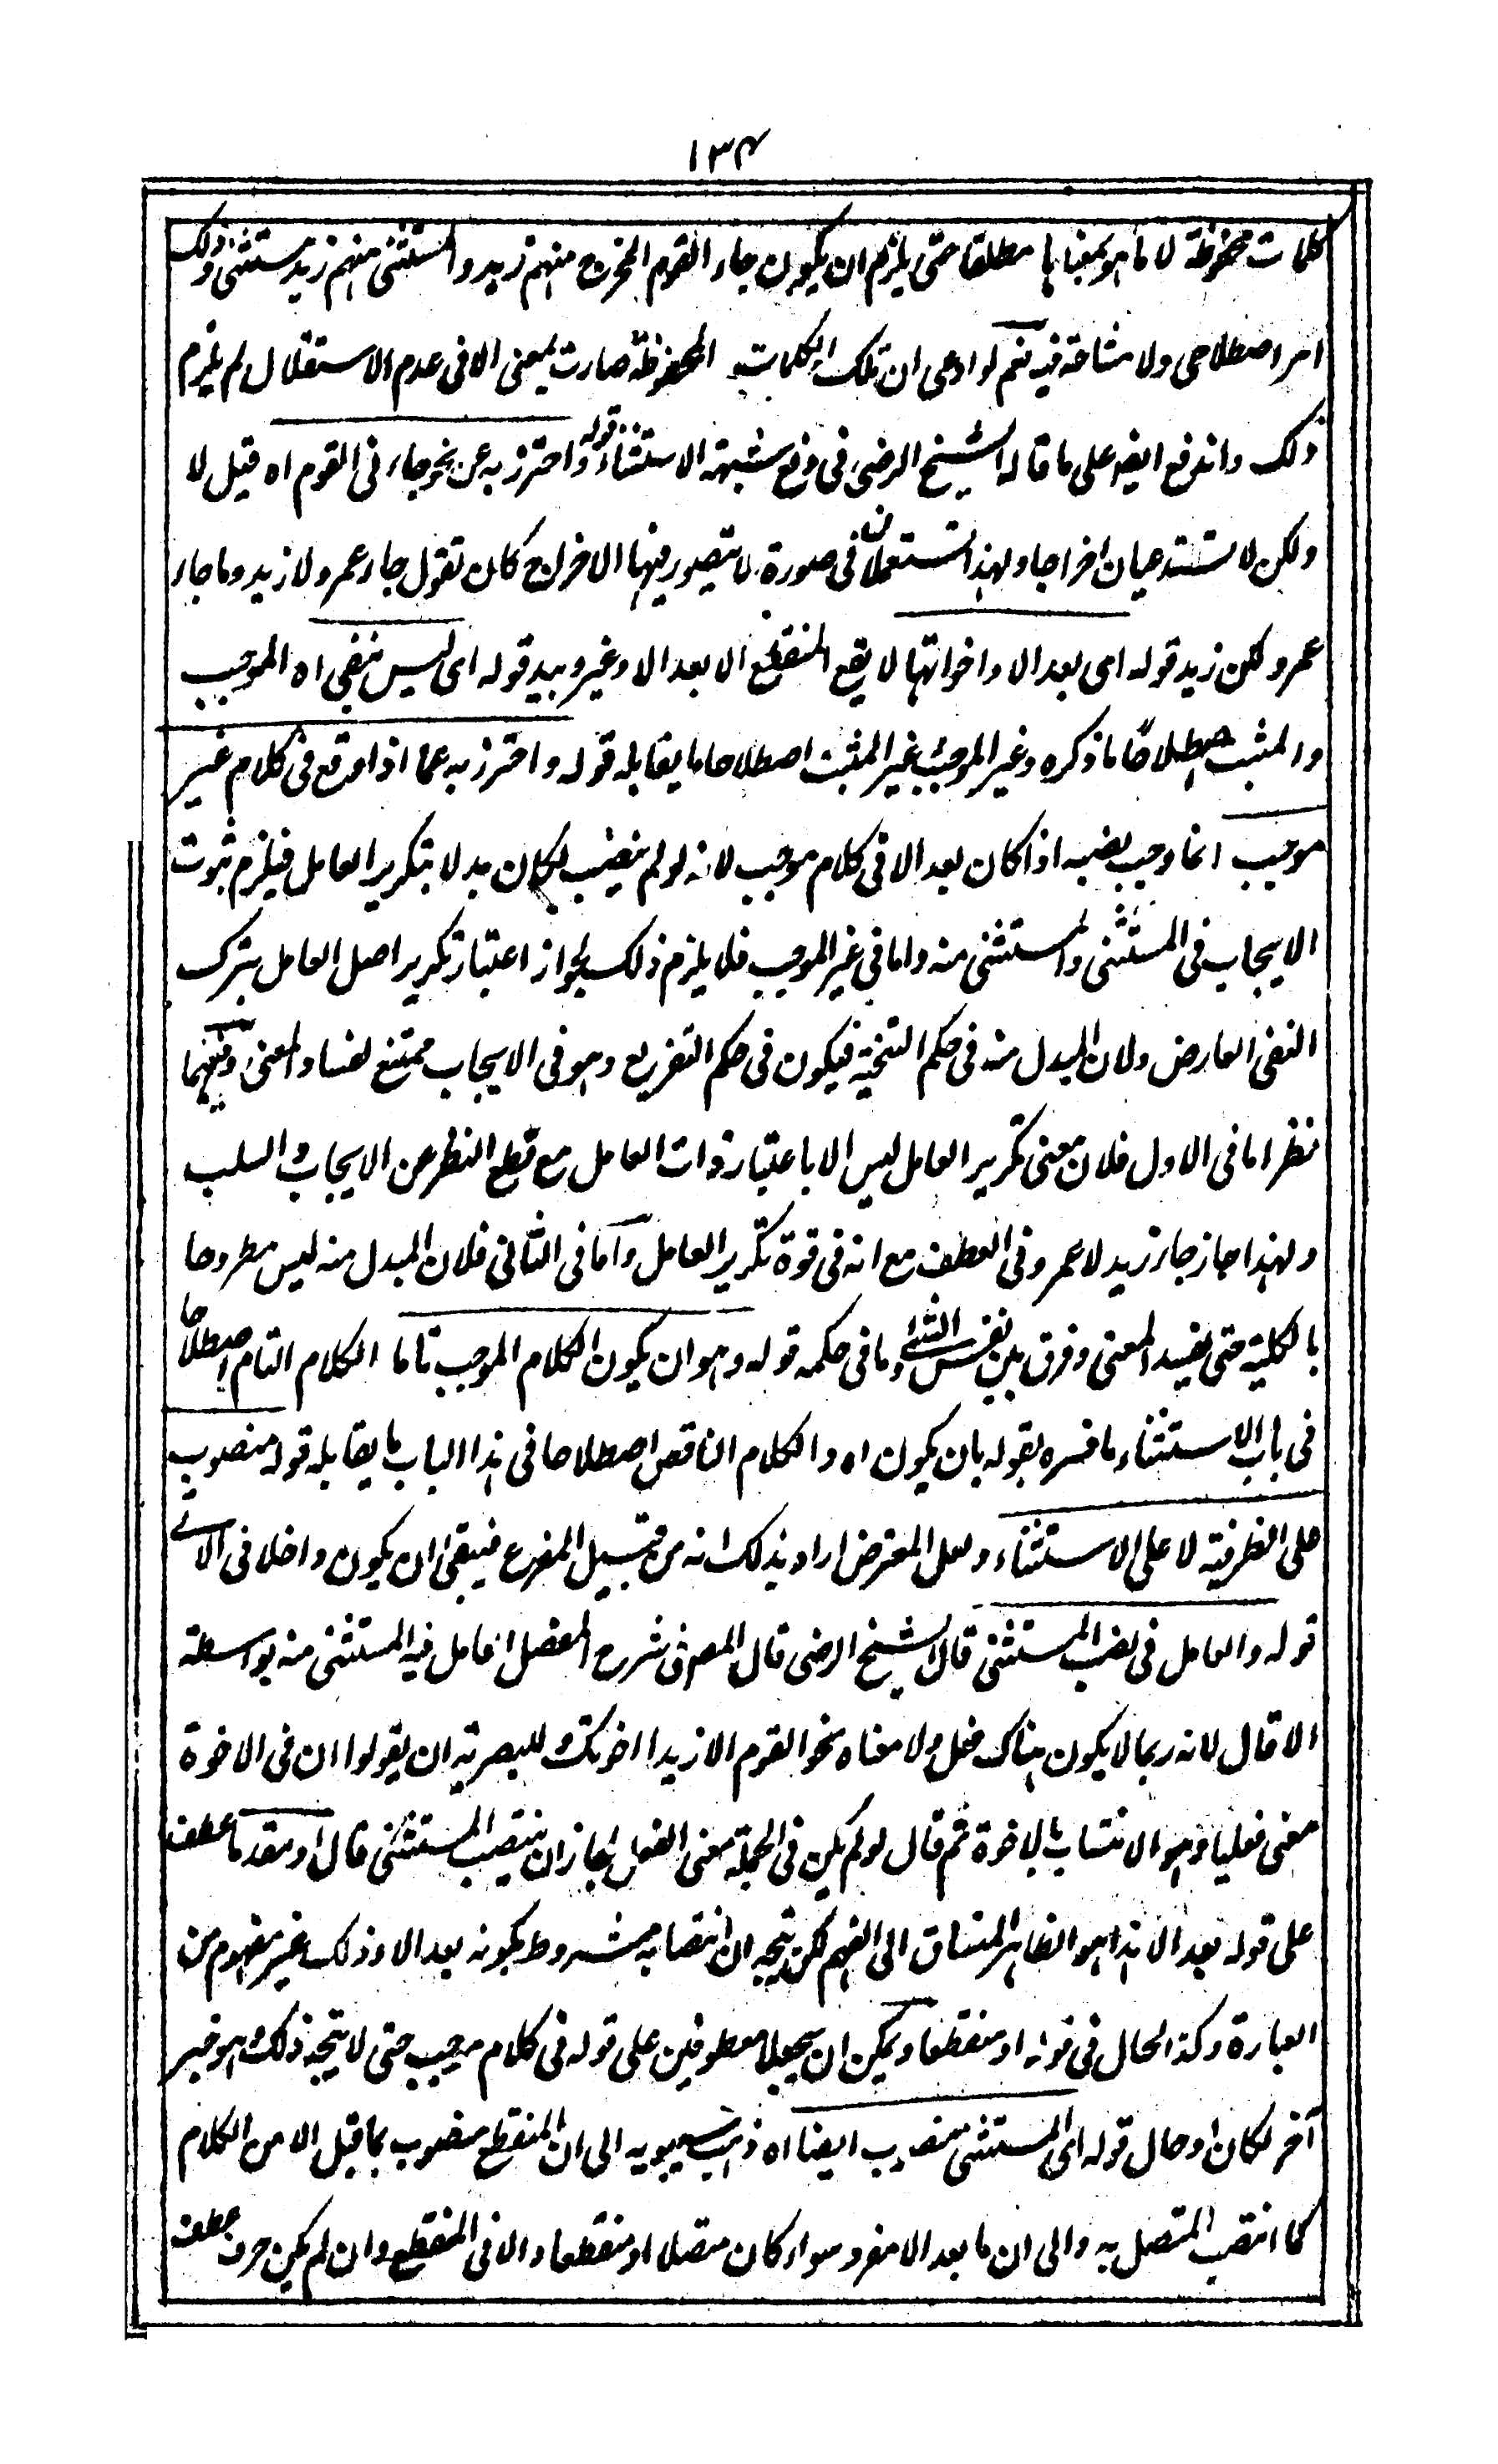 ١٣٤
كلمات محفوظة لا ما هو بمعناها مطلقا حتى يلزم ان يكون جاء القوم المخرج منهم زيد والمستثنى منهم زيد مستثنى وذلك
امر اصطلاحى ولا مشاحة فيه نعم لو ادعى ان تلك الكلمات المحفوظة صارت بمعنى الا فى عدم الاستقلال لم يلزم
ذلك واندفع ايضا على ما قاله الشيخ الرضى فى دفع شبهة الاستثناء قوله واحترز به عن نحو جاءنى القوم اه قيل لا
ولكن لا تستدعيان اخراجا ولهذا تستعملان فى صورة لا يتصور فيها الاخراج كان تقول جاء عمرو لا زيد وما جاء
عمرو لكن زيد قوله اى بعد الا واخواتها لا يقع المنقطع الا بعد الا وغير وبيد قوله اى ليس بنفى اه الموجب
والمثبت اصطلاحا ما ذكره وغير الموجب غير المثبت اصطلاحا ما يقابله قوله واحترز به عما اذا وقع فى كلام غير
موجب انما وجب نصبه اذا كان بعد الا فى كلام موجب لانه لو لم ينصب لكان بدلا بتكرير العامل فيلزم ثبوت
الايجاب فى المستثنى والمستثنى منه واما فى غير الموجب فلا يلزم ذلك لجواز اعتبار تكرير اصل العامل بترك
النفى العارض ولان المبدل منه فى حكم التنحية فيكون فى حكم التفريع وهو فى الايجاب ممتنع لفساد المعنى وفيهما
نظر اما فى الاول فلان معنى تكرير العامل ليس الا باعتبار ذات العامل مع قطع النظر عن الايجاب والسلب
ولهذا جاز جاء زيد لا عمرو فى العطف مع انه فى قوة تكرير العامل واما فى الثانى فلان المبدل منه ليس مطروحا
بالكلية حتى يفسد المعنى وفرق بين نفس الشئ وما فى حكمه قوله وهو ان يكون الكلام الموجب تاما الكلام التام اصطلاحا
فى باب الاستثناء ما فسره بقوله بان يكون اه والكلام الناقص اصطلاحا فى هذا الباب ما يقابله قوله منصوب
على الظرفية لا على الاستثناء ولعل المعترض اراد بذلك انه من قبيل المفرغ فينبغى ان يكون داخلا فى الاتى
قوله والعامل فى نصب المستثنى قال الشيخ الرضى قال المصم فى شرح المفصل العامل فيه المستثنى منه بواسطة
الا قال لانه ربما لا يكون هناك فعل ولا معناه نحو القوم الا زيدا اخوتك وللبصرية ان يقولوا ان فى الاخوة
معنى فعليا وهو الانتساب بالاخوة ثم قال لو لم يكن فى الجملة معنى الفعل لجاز ان ينتصب المستثنى قال او مقدما عطف
على قوله بعد الا هذا هو الظاهر المنساق الى الفهم لكن يتجه ان انتصابه مشروط بكونه بعد الا وذلك غير مفهوم من
العبارة وكذا الحال فى قوله او منقطعا ويمكن ان يجعلا معطوفين على قوله فى كلام موجب حتى لا يتجه ذلك وهو خبر
آخر لكان او حال قوله اى المستثنى منصوب ايضا اه ذهب سيبويه الى ان المنقطع منصوب بما قبل الا من الكلام
كما انتصب المتصل به والى ان ما بعد الا مفرد سواء كان متصلا او منقطعا والا فى المنقطع وان لم يكن حرف عطف